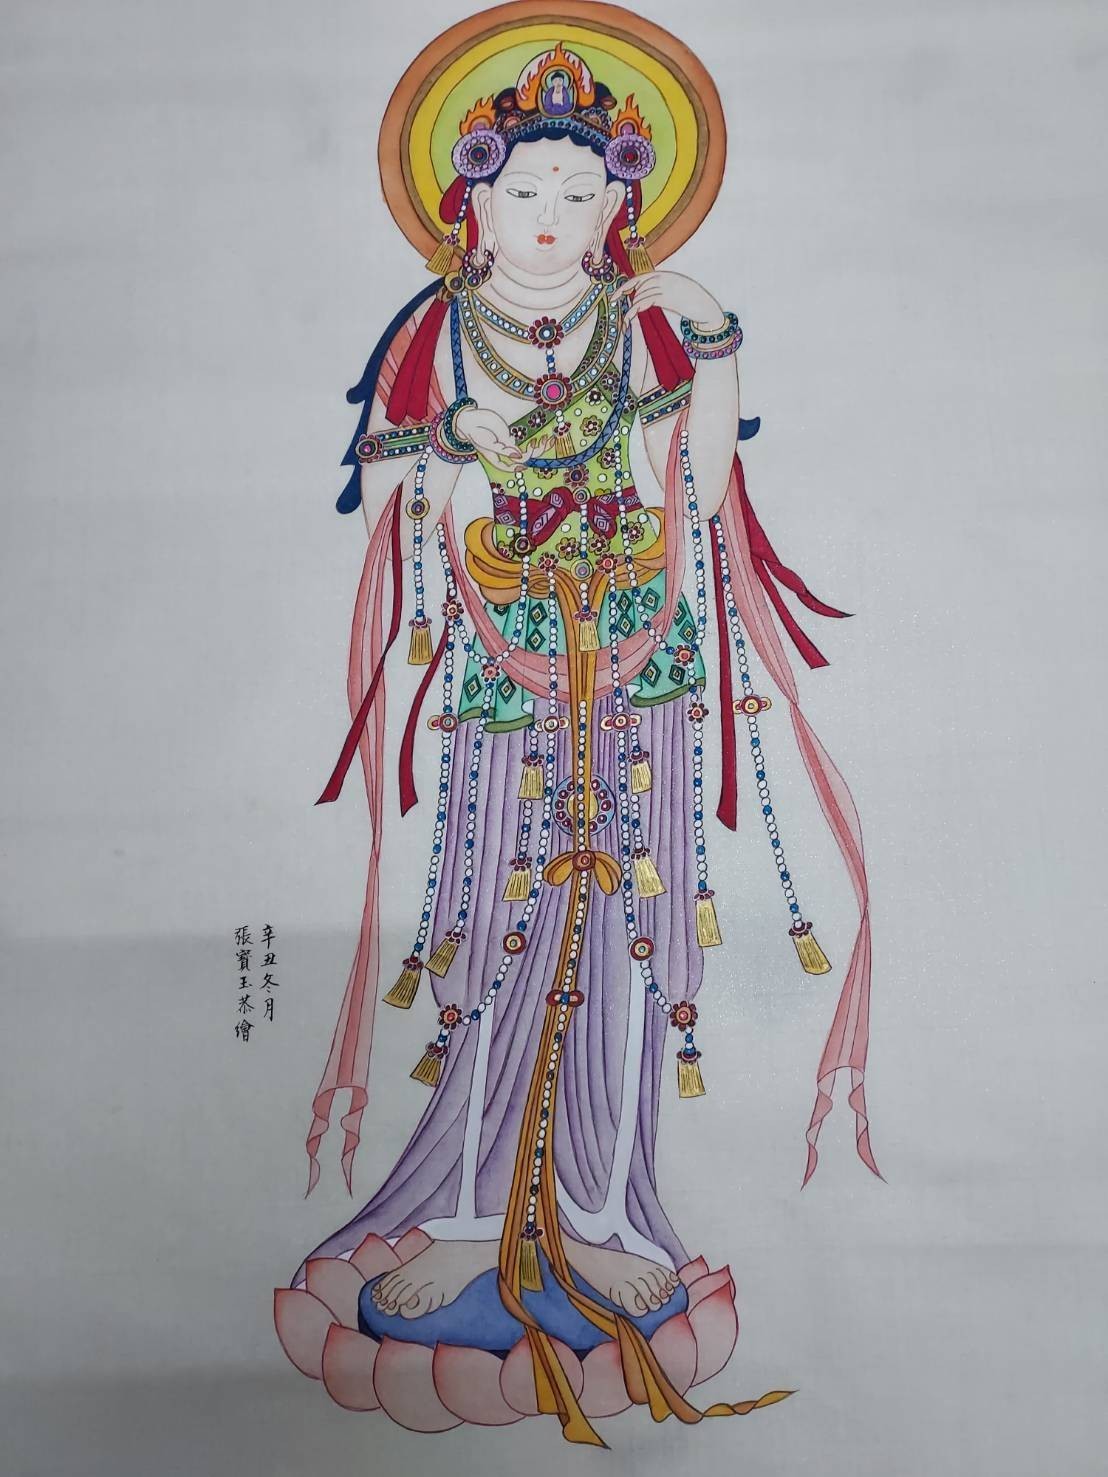 辛丑冬月
張寶玉恭繪